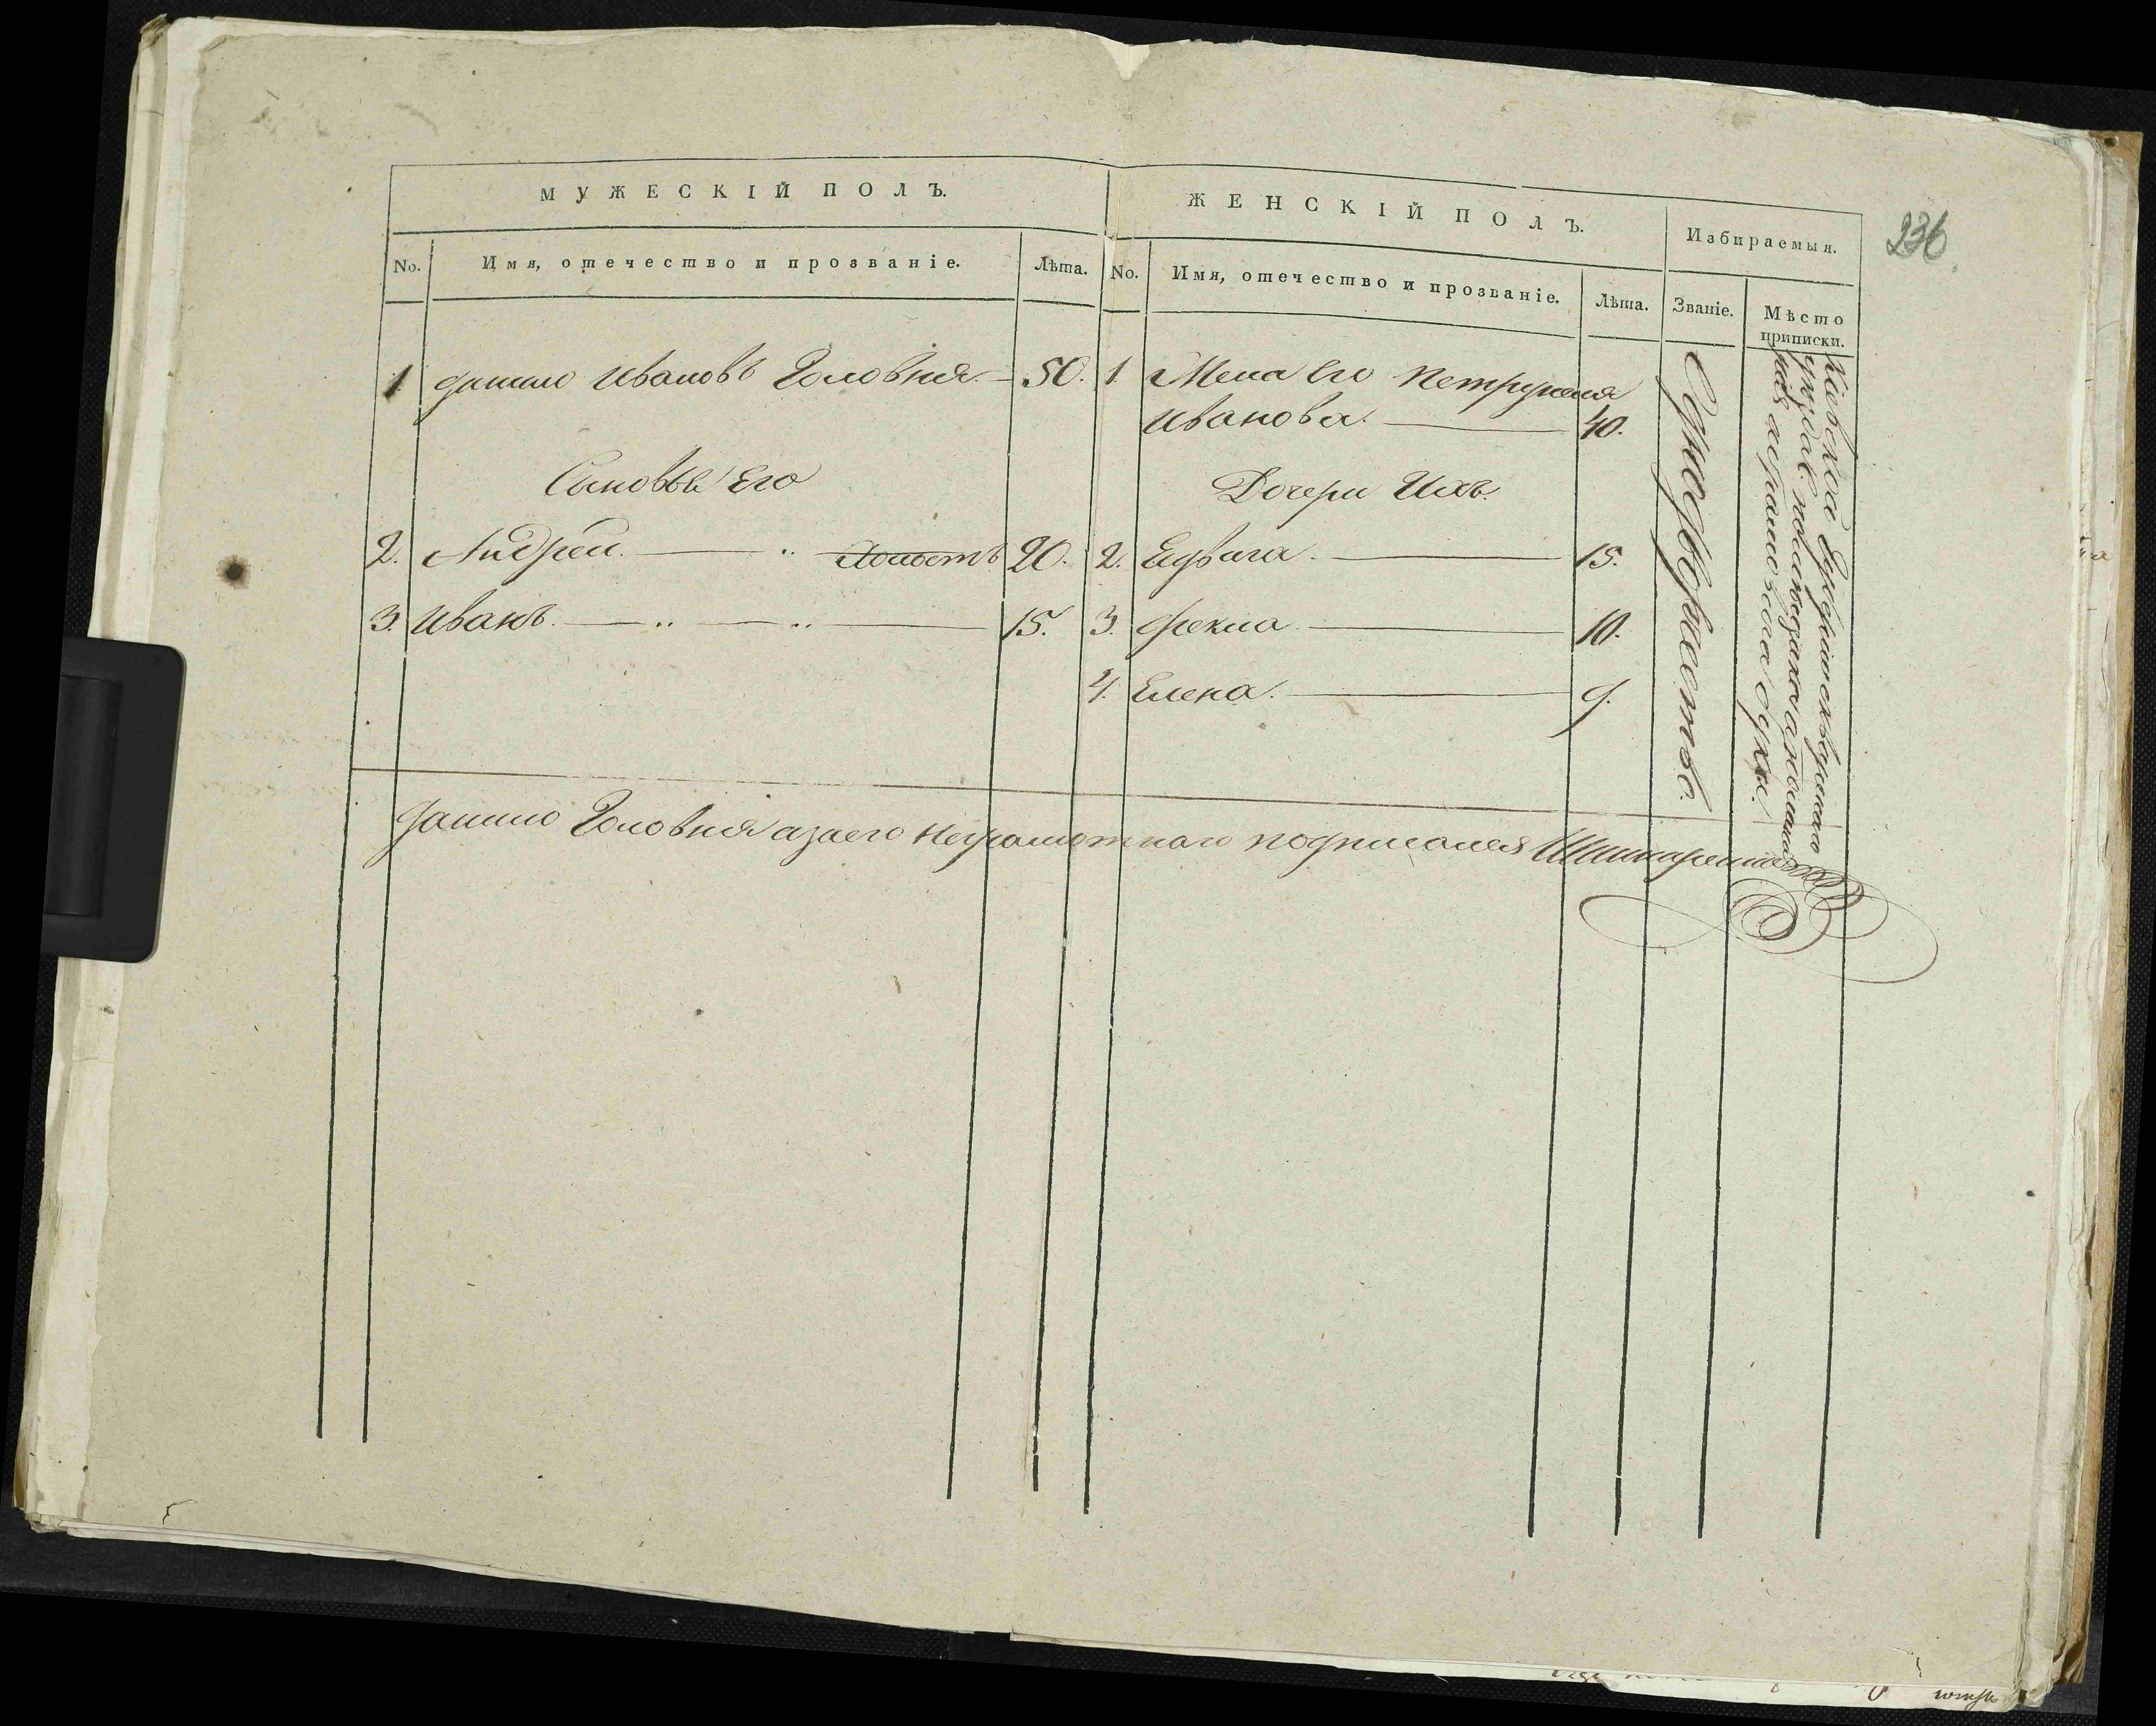 МУЖЕСКІЙ ПОЛЪ.
ЖЕНСКІЙ ПОЛЪ.
Избираемыя.
236
No.
Имя, отечество и прозваніе.
Лѣта.
No.
Имя, отечество и прозваніе.
Лѣта.
Званіе.
Мѣсто
приписки.
1 Данило Ивановъ Головня. — 50.
1. Жена Его Петрунеля
Иванова. — 40.
Сыновья Его
Дочери Ихъ.
2. Андрей. — " — Холостъ 20.
2. Едвига. — 15.
3. Иванъ. — " — " — 15.
3. Фекла — 10.
4. Елена. — 9.
Однодворчество.
Данило Головня а за его неграмотнаго подписался